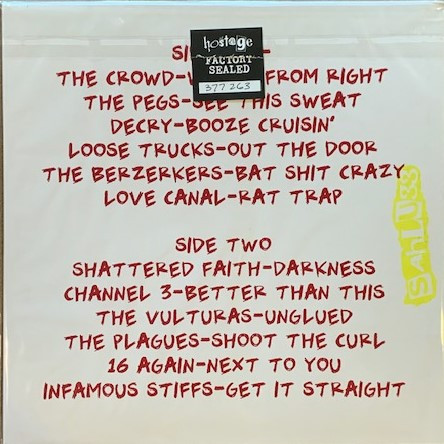 hostage
FACTORY
SEALED
377 263
THE CROWD- FROM RIGHT
THE PEGS-SEE THIS SWEAT
DECRY-BOOZE CRUISIN'
LOOSE TRUCKS-OUT THE DOOR
THE BERZERKERS-BAT SHIT CRAZY
LOVE CANAL-RAT TRAP
SIDE TWO
SHATTERED FAITH-DARKNESS
CHANNEL 3-BETTER THAN THIS
THE VULTURAS-UNGLUED
THE PLAGUES-SHOOT THE CURL
16 AGAIN-NEXT TO YOU
INFAMOUS STIFFS-GET IT STRAIGHT